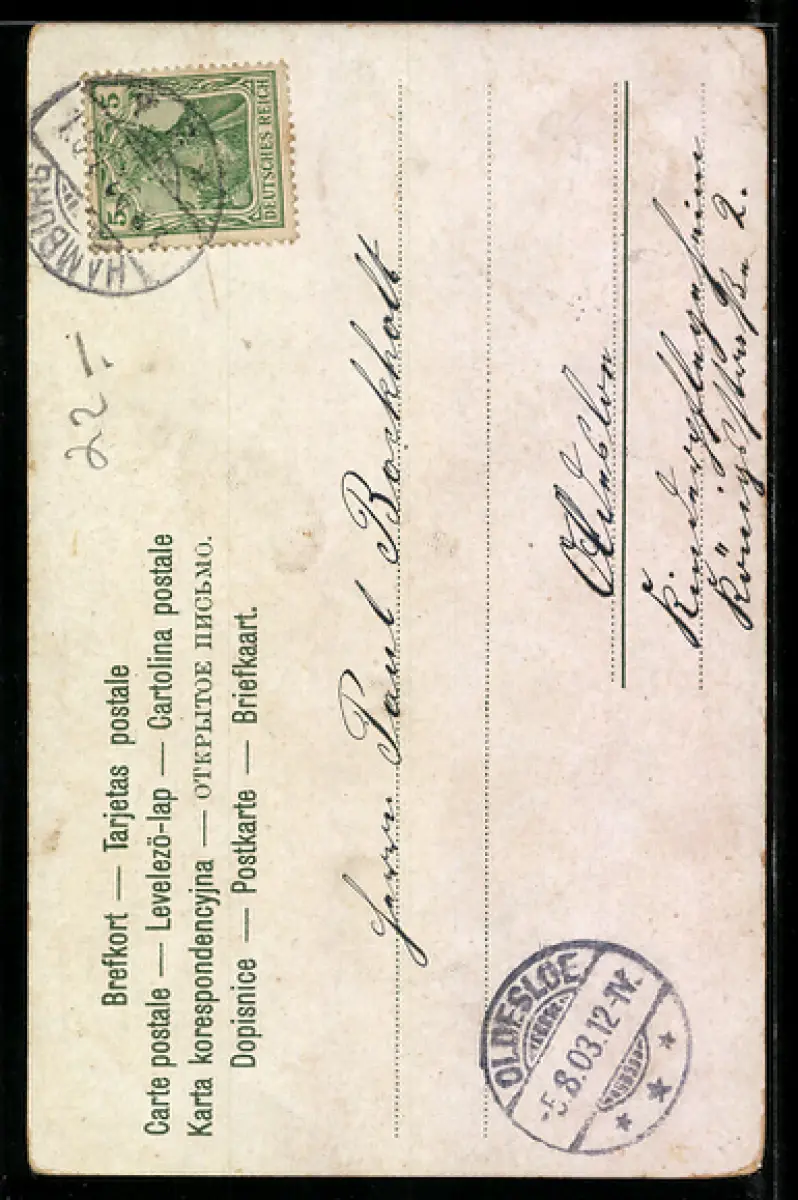 Brefkort — Tarjetas postale
Carte postale — Levelezö-lap — Cartolina postale
Karta korespondencyjna — ОТКРЫТОЕ ПИСЬМО.
Dopisnice — Postkarte — Briefkaart.
22-
5 5
DEUTSCHES REICH
HAMBURG
Herrn Paul Bockholt
Oldesloe
Kinderpflegeheim
Königstraße 2.
OLDESLOE
-5.8.03.12-1V.